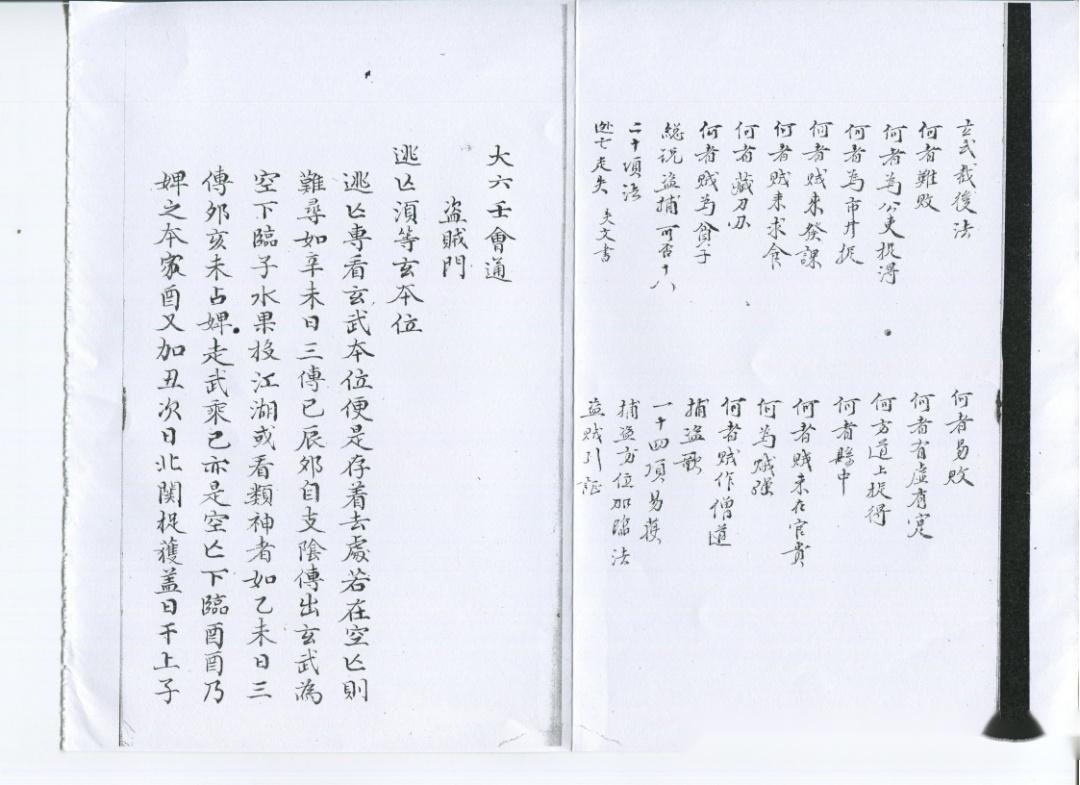 玄武裁後法
何者難敗
何者為公吏捉得
何者為市井捉
何者賊來發課
何者賊來求食
何者藏刀刃
何者賊為貧子
総説盜捕可否十八
二十項法
逃亡走失 失文書
何者易敗
何者有虛有實
何方道上捉得
何者縣中
何者賊來在官貴
何為賊強
何者賊作僧道
捕盜歌
一十四項易獲
捕盜方位加臨法
盜賊引証
大六壬會通
盜賊門
逃亾須等玄本位
逃亾專看玄武本位便是存着去處若在空亾則
難尋如辛未日三傳巳辰夘自支陰傳出玄武為
空下臨子水果投江湖或看類神者如乙未日三
傳夘亥未占婢走武乘巳亦是空亾下臨酉酉乃
婢之本家酉又加丑次日北関捉獲盖日干上子